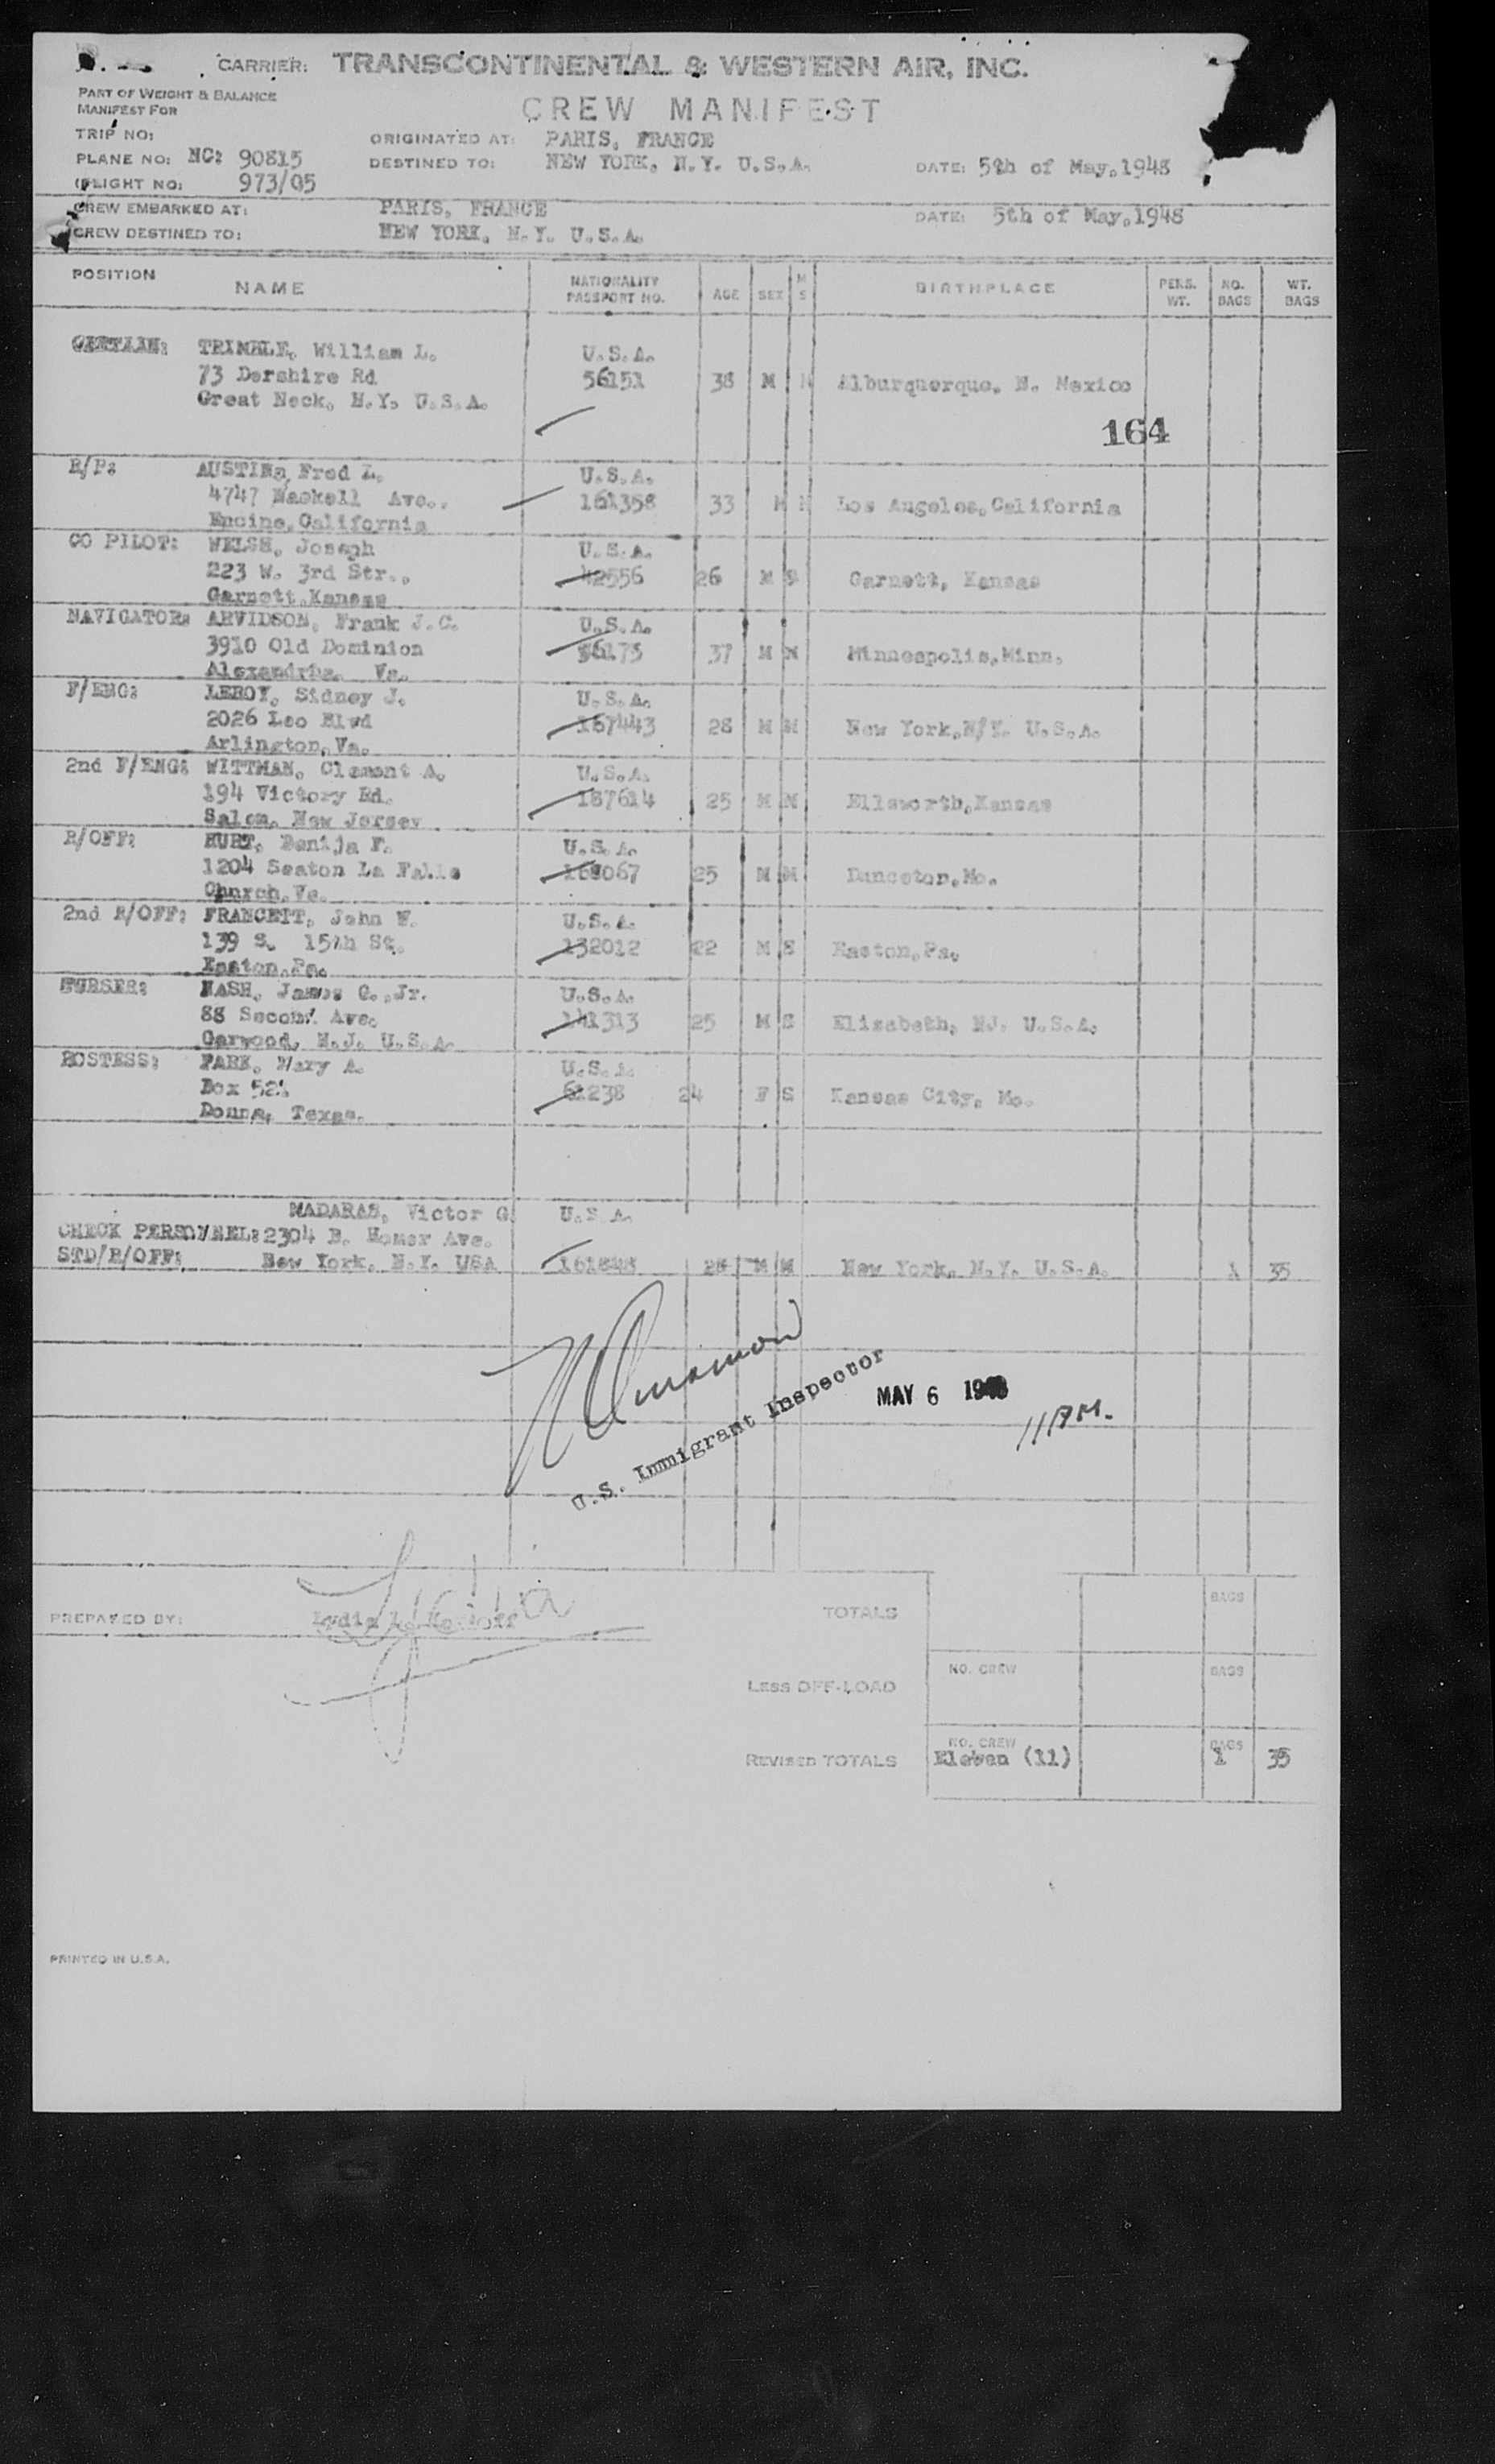 CARRIER: TRANSCONTINENTAL & WESTERN AIR, INC.
PART OF WEIGHT & BALANCE
MANIFEST FOR
CREW MANIFEST
TRIP NO:
ORIGINATED AT: PARIS, FRANCE
PLANE NO: NC: 90815
DESTINED TO: NEW YORK, N.Y. U.S.A.
DATE: 5th of May,1948
FLIGHT NO: 973/05
CREW EMBARKED AT: PARIS, FRANCE
DATE: 5th of May,1948
CREW DESTINED TO: NEW YORK, N.Y. U.S.A.
POSITION NAME NATIONALITY PASSPORT NO. AGE SEX M S BIRTHPLACE PERS. WT. NO. BAGS WT. BAGS
CAPTAIN: TRIMBLE, William L. U.S.A.
73 Dershire Rd 56151 38 M M Alburquerque, N. Mexico
Great Neck, N.Y. U.S.A.
164
R/P: AUSTIN, Fred L. U.S.A.
4747 Haskell Ave., 161358 33 M M Los Angeles,California
Encino,California
CO PILOT: WELSH, Joseph U.S.A.
223 W. 3rd Str., 42556 26 M S Garnett, Kansas
Garnett,Kansas
NAVIGATOR: ARVIDSON, Frank J.C. U.S.A.
3910 Old Dominion 56175 37 M M Minneapolis,Minn.
Alexandria, Va.
F/ENG: LEROY, Sidney J. U.S.A.
2026 Leo Blvd 167443 28 M M New York,N/Y. U.S.A.
Arlington,Va.
2nd F/ENG: WITTMAN, Clement A. U.S.A.
194 Victory Rd. 187614 25 M M Ellsworth,Kansas
Salem, New Jersey
R/OFF: HURT, F. U.S.A.
1204 Seaton La Falls 25 M M Bunceton,Mo.
Church,Va.
2nd R/OFF: John F. U.S.A.
139 S. 15th St. 132012 22 M S Easton,Pa.
Easton,Pa.
PURSER: NASH, James G.,Jr. U.S.A.
88 Second Ave. 141313 25 M S Elizabeth, NJ. U.S.A.
Garwood, N.J. U.S.A.
HOSTESS: PARK, Mary A. U.S.A.
Box 61238 24 F S Kansas City, Mo.
Donna, Texas.
MADARAS, Victor G. U.S.A.
CHECK PERSONNEL: 2304 Homer Ave.
STD/R/OFF: New York, N.Y. USA 28 M M New York, N.Y. U.S.A. 1 35
U.S. Immigrant Inspector
MAY 6 1948
11 AM.
PREPARED BY: Lydia
TOTALS BAGS
LESS OFF-LOAD NO. CREW BAGS
REVISED TOTALS NO. CREW Eleven (11) BAGS 1 35
PRINTED IN U.S.A.